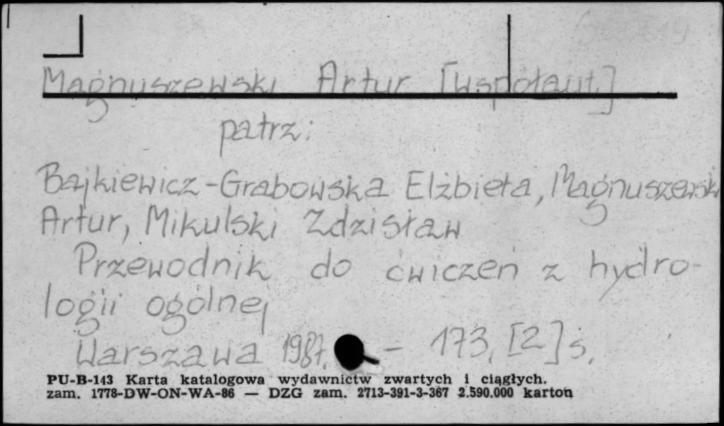 Magnuszewski Artur [współaut.]
patrz:
Bajkiewicz-Grabowska Elżbieta, Magnuszewski
Artur, Mikulski Zdzisław
Przewodnik do ćwiczeń z hydro-
logii ogólnej
Warszawa 1987. - 173, [2] s.
PU-B-143 Karta katalogowa wydawnictw zwartych i ciągłych.
zam. 1778-DW-ON-WA-86 — DZG zam. 2713-391-3-367 2.590.000 karton